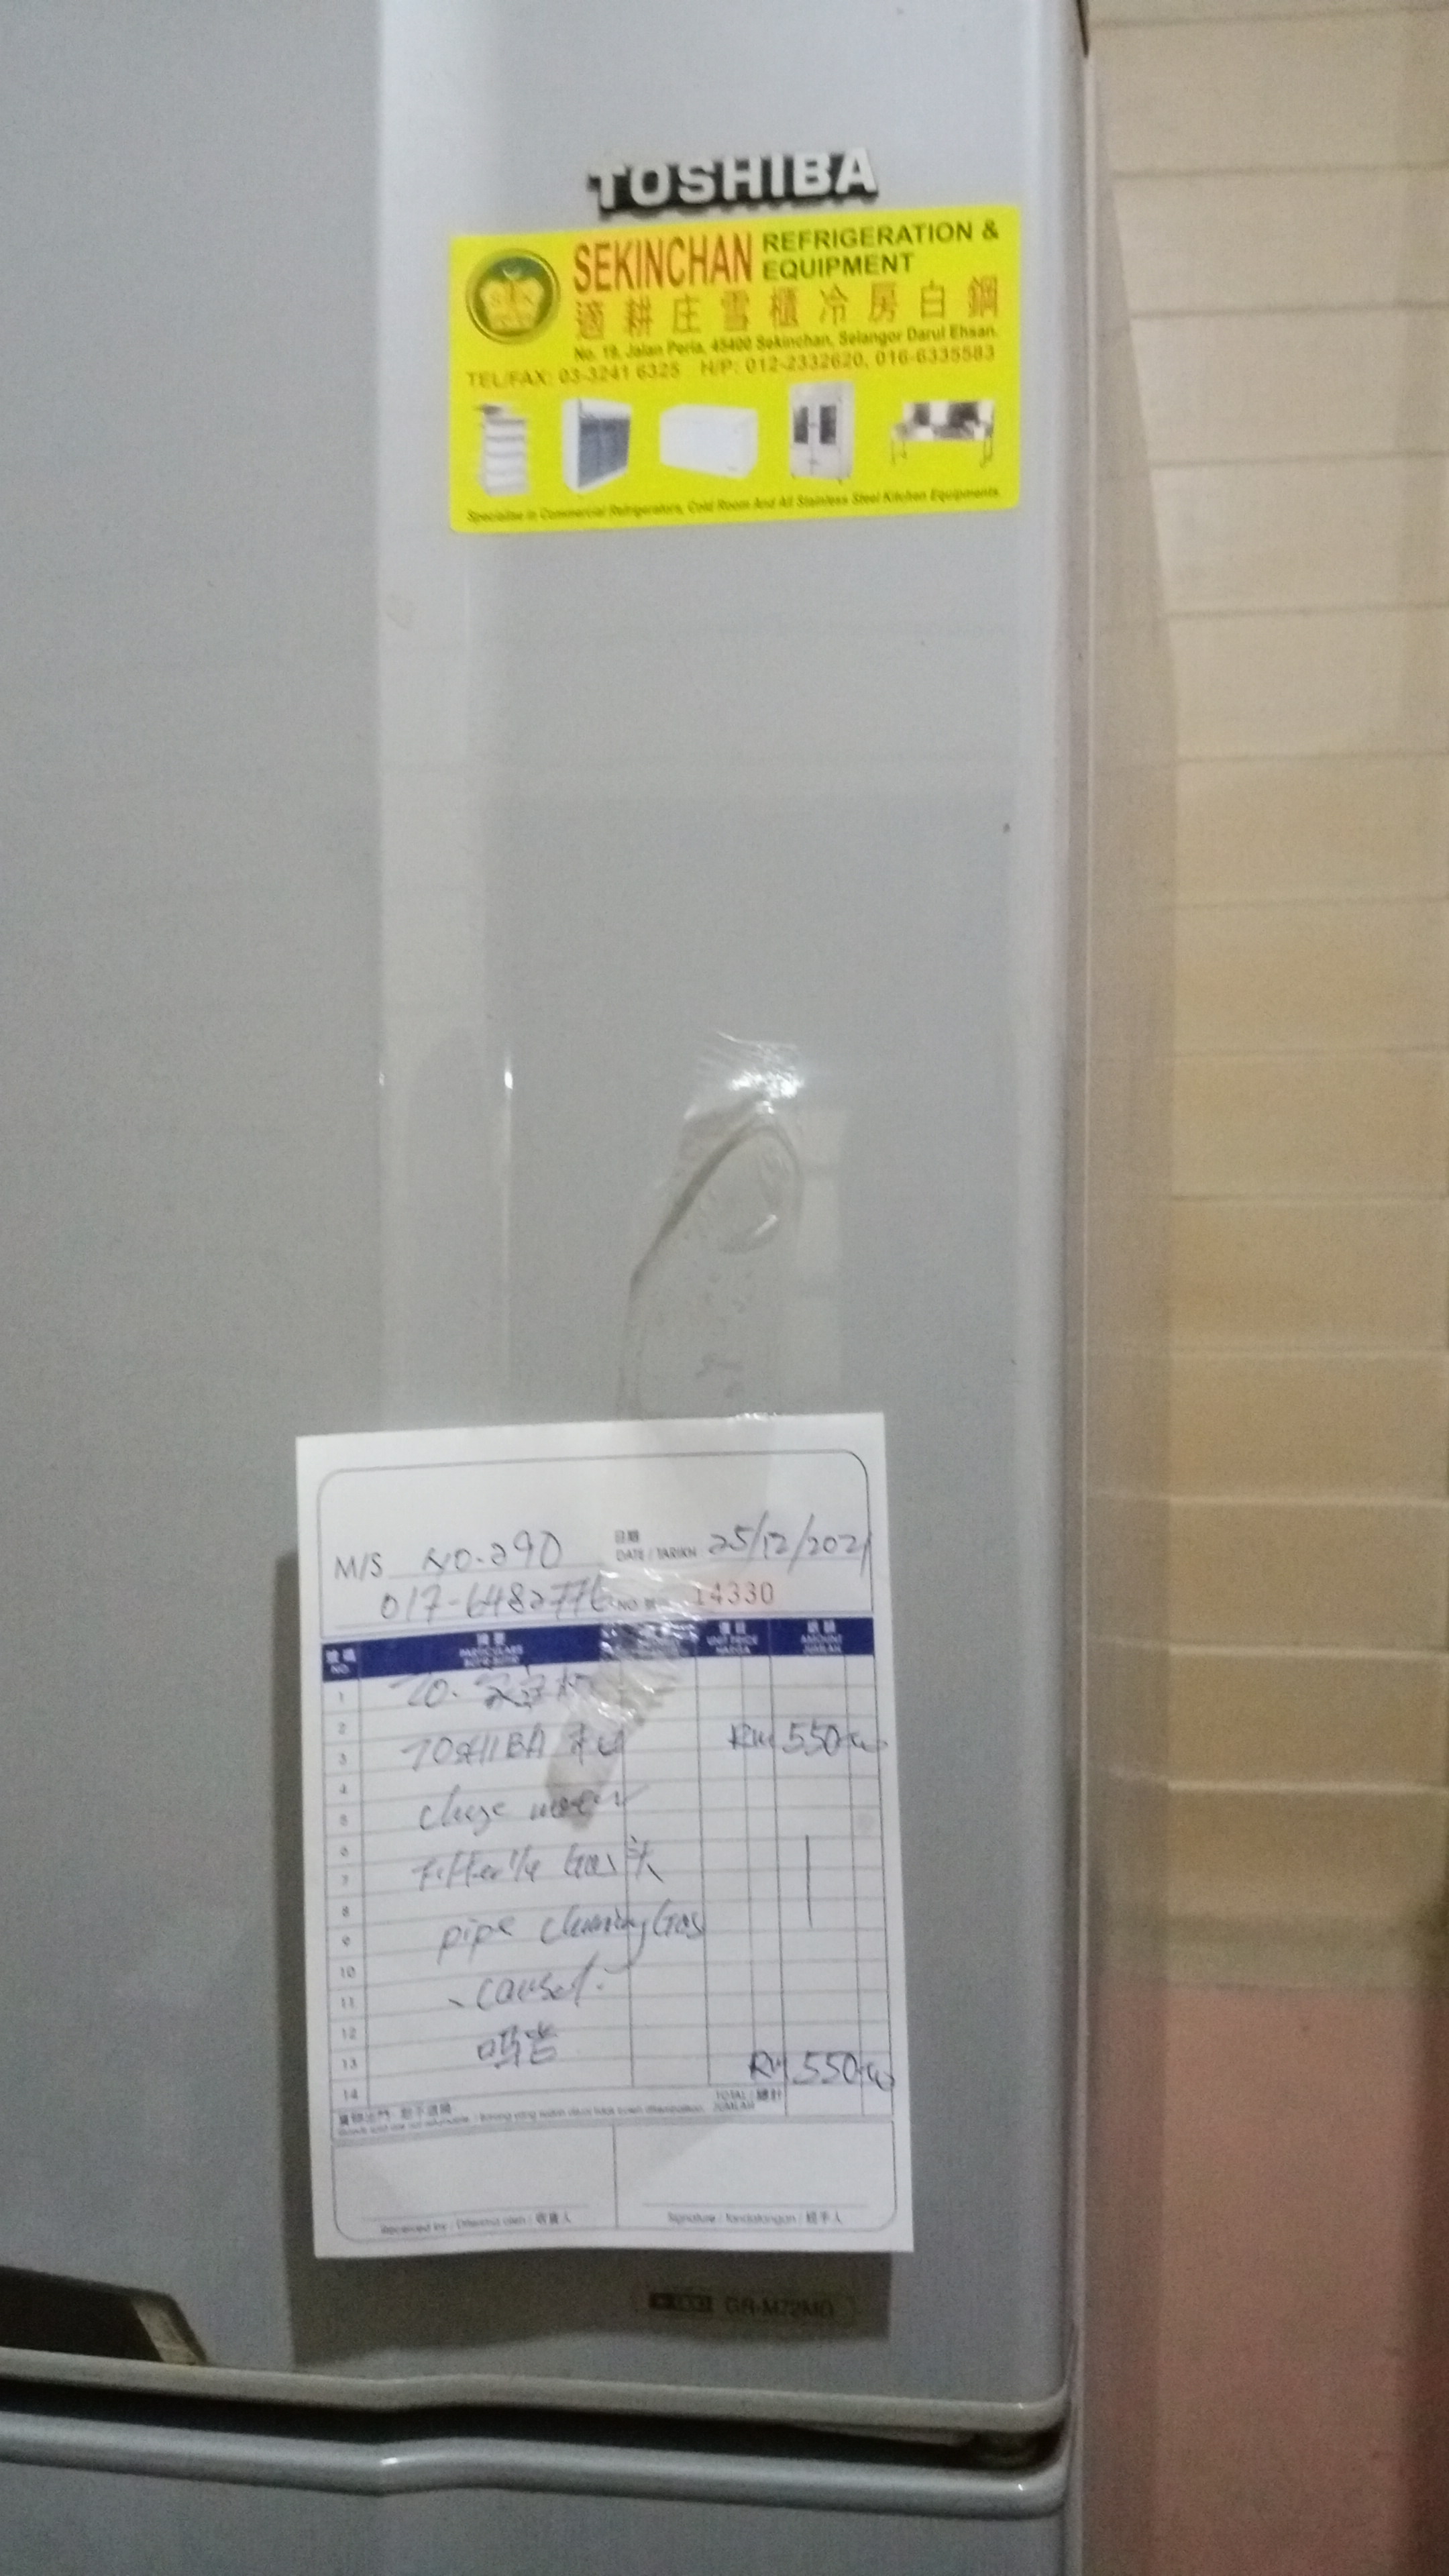 TOSHIBA
SEKINCHAN REFRIGERATION & EQUIPMENT
適耕庄雪櫃冷房白鋼
No. 19, Jalan Peria, 45400 Sekinchan, Selangor Darul Ehsan.
TEL/FAX: 03-3241 6325 H/P: 012-2332620, 016-6335583
Specialise in Commercial Refrigerators, Cold Room And All Stainless Steel Kitchen Equipments.
M/S NO.290
日期
DATE / TARIKH 25/12/2021
017-6482776 NO. 14330
號碼 NO.
摘要 PARTICULARS BUTIR-BUTIR
價錢 UNIT PRICE HARGA
銀額 AMOUNT JUMLAH
1
2
3 TOSHIBA RM 550
4
5
6
7 Filter 1/4 Gas
8
9 pipe cleaning Gas
10
11
12
13 RM 550
14
TOTAL / 總計 JUMLAH
Received by / Diterima oleh / 收貨人
Signature / Tandatangan / 經手人
GR-M72MD